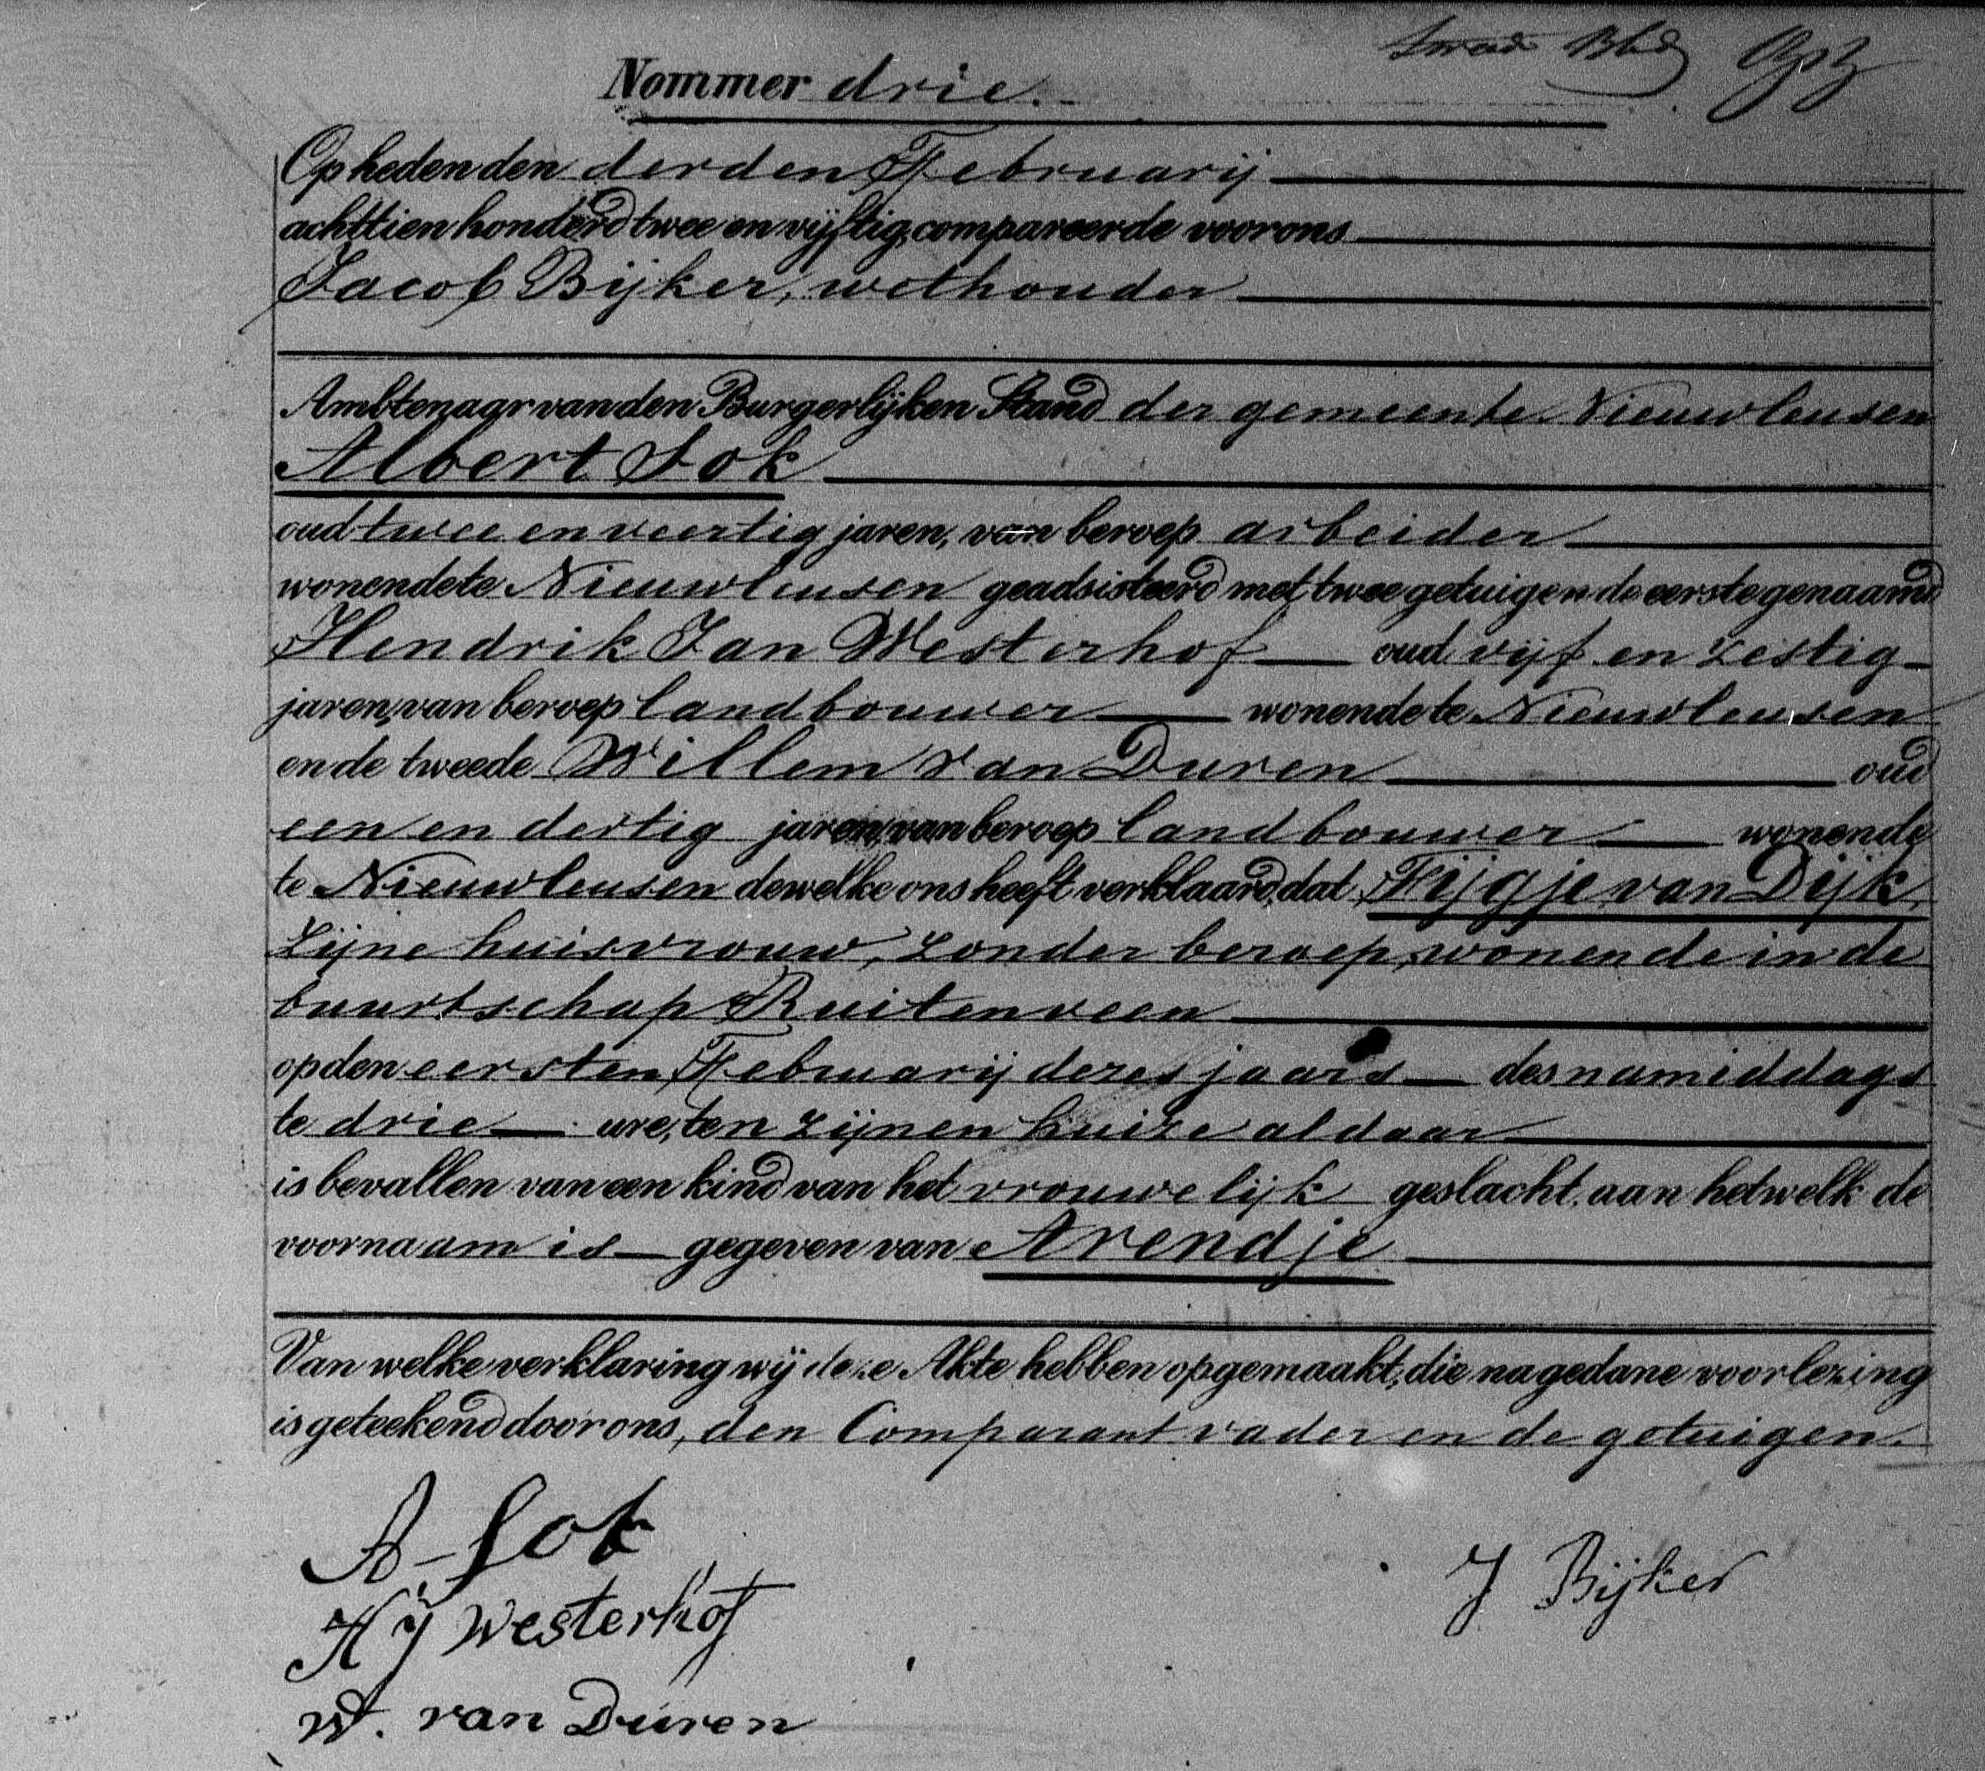 Nommer drie.
Op heden den derden Februarij
achttien honderd twee en vijftig, compareerde voor ons
Jacob Bijker, wethouder
Ambtenaar van den Burgerlijken Stand der gemeente Nieuwleusen
Albert Sok
oud twee en veertig jaren, van beroep arbeider
wonende te Nieuwleusen geadsisteerd met twee getuigen de eerste genaamd
Hendrik Jan Westerhof oud vijf en zestig
jaren, van beroep landbouwer wonende te Nieuwleusen
en de tweede Willem van Duren oud
een en dertig jaren, van beroep landbouwer wonende
te Nieuwleusen dewelke ons heeft verklaard, dat Fijgje van Dijk,
zijne huisvrouw, zonder beroep, wonende in de
buurtschap Ruitenveen
op den eersten Februarij dezes jaars des namiddags
te drie ure, ten zijnen huize aldaar
is bevallen van een kind van het vrouwelijk geslacht, aan hetwelk de
voornaam is gegeven van Arendje
Van welke verklaring wij deze Akte hebben opgemaakt, die na gedane voorlezing
is geteekend door ons, den Comparant vader en de getuigen.
A-Sok
J Bijker
HJ Westerhof
W. van Duren